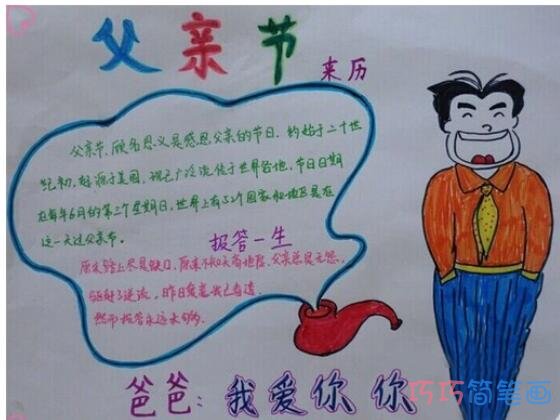 父亲节
来历
父亲节,顾名思义是感恩父亲的节日。约始于二十世
纪初,起源于美国,现已广泛流传于世界各地,节日日期
在每年6月的第3个星期日,世界上有52个国家和地区是在
这一天过父亲节。
报答一生
原来路上尽是缺口,原来
父亲总是无怨,
昨日
然而报答永远太
爸爸:我爱你 你
巧巧简笔画